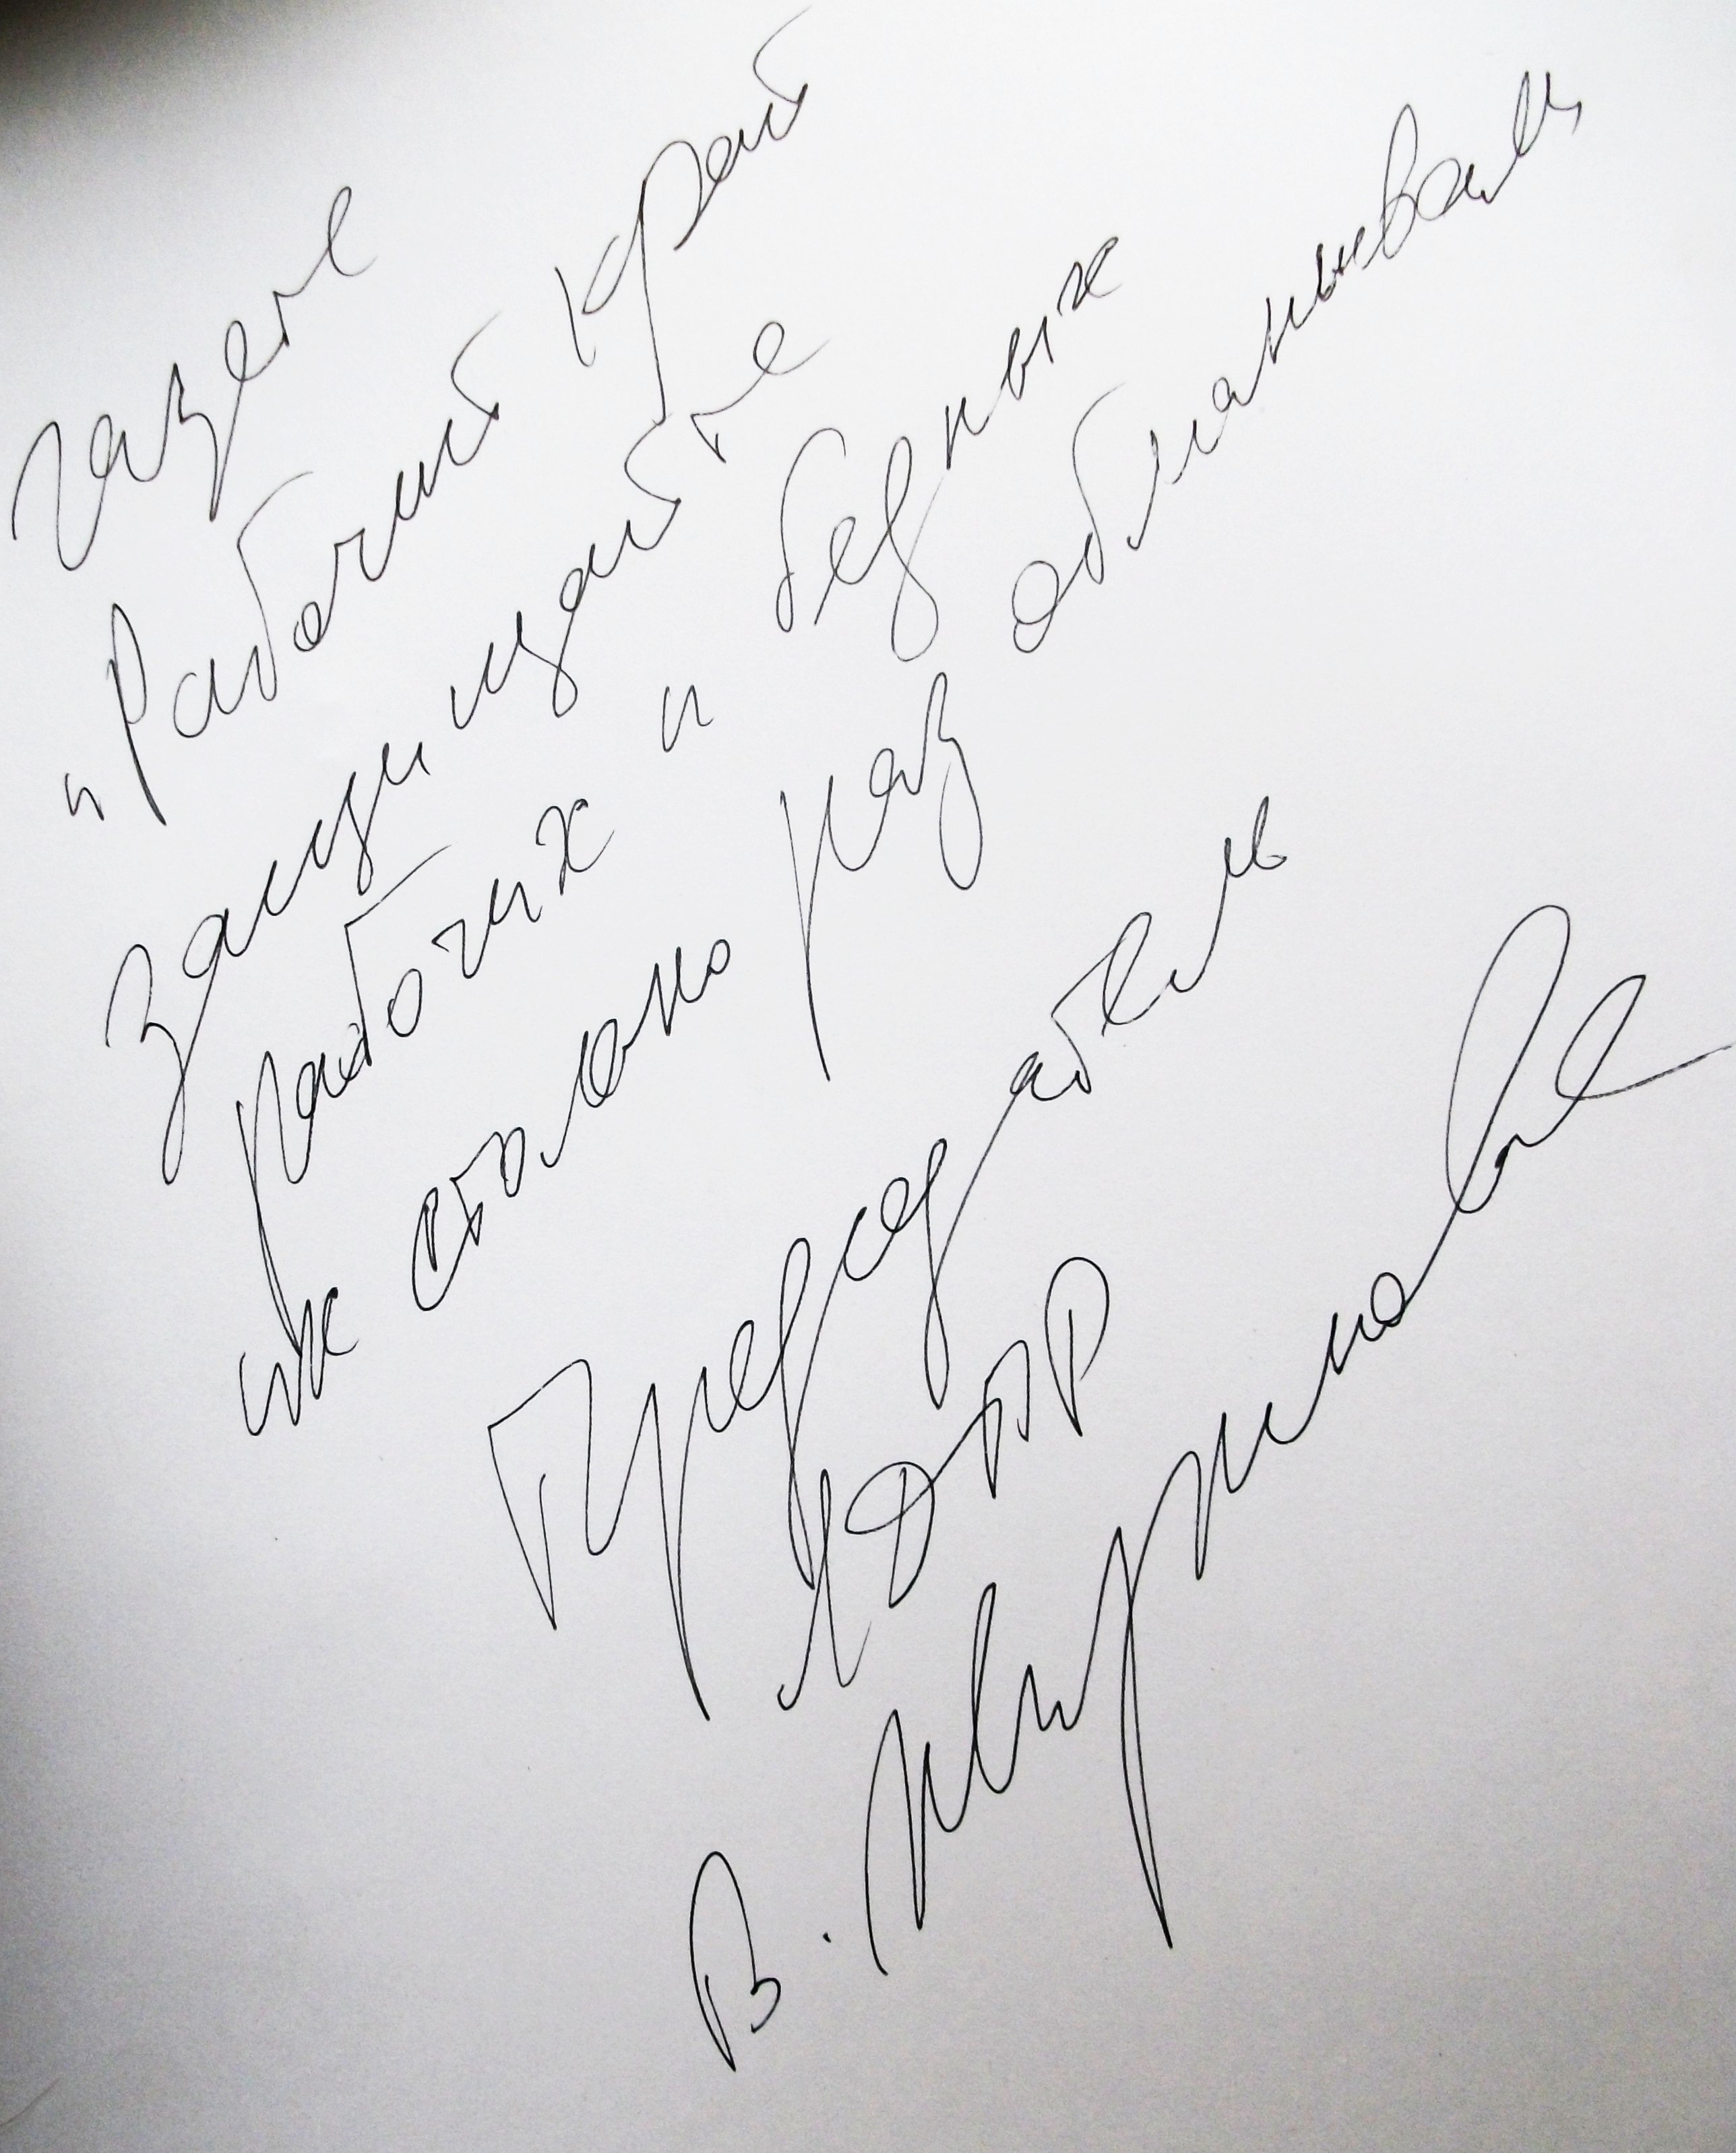 газете
"Рабочий край
защищайте
рабочих и бедных
их столько раз обманывали
Председатель
ЛДПР
В. Жириновский